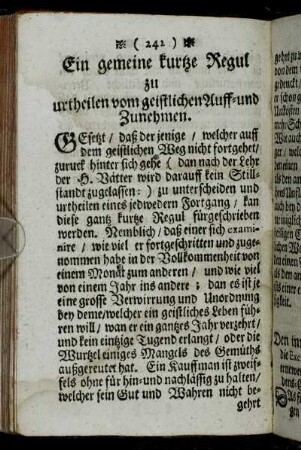 ( 242 )
Ein gemeine kurtze Regul
zu
urtheilen vom geistlichen Auff- und
Zunehmen.
GEsetzt / daß der jenige / welcher auff
dem geistlichen Weg nicht fortgehet /
zuruck hinter sich gehe ( dan nach der Lehr
der H. Vätter wird darauff kein Still-
stand zugelassen: ) zu unterscheiden und
urtheilen eines jedwedern Fortgang / kan
diese gantz kurtze Regul fürgeschrieben
werden. Nemblich / daß einer sich exami-
nire / wie viel er fortgeschritten und zuge-
nommen habe in der Vollkommenheit von
einem Monat zum anderen / und wie viel
von einem Jahr ins andere; dan es ist je
eine grosse Verwirrung und Unordnung
bey deme / welcher ein geistliches Leben füh-
ren will / wan er ein gantzes Jahr verzehrt /
und kein eintzige Tugend erlangt / oder die
Wurtzel einiges Mangels des Gemüths
außgereutet hat. Ein Kauffman ist zweif-
fels ohne für hin- und nachlässig zu halten /
welcher sein Gut und Wahren nicht be-
gehrt